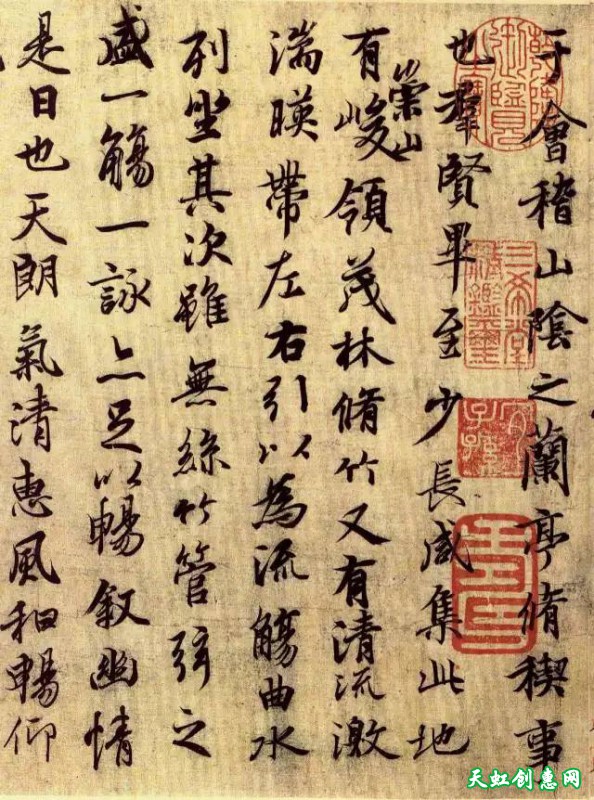 于會稽山陰之蘭亭脩稧事
也羣賢畢至少長咸集此地
有崇山峻領茂林脩竹又有清流激
湍暎帶左右引以為流觴曲水
列坐其次雖無絲竹管弦之
盛一觴一詠亦足以暢叙幽情
是日也天朗氣清惠風和暢仰
三希堂精鑑璽
宜子孫
天虹创惠网